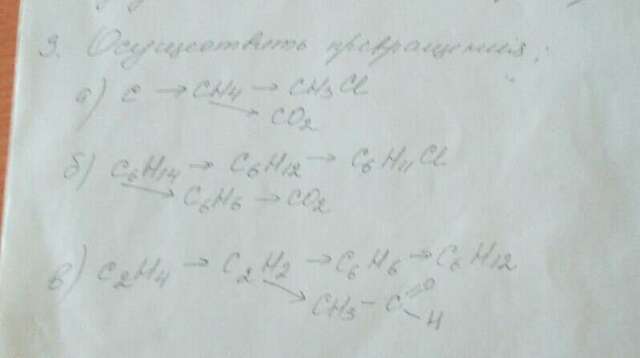 3. Осуществить превращения:
а) C → CH4 → CH3Cl
→ CO2
б) C6H14 → C6H12 → C6H11Cl
→ C6H6 → CO2
в) C2H4 → C2H2 → C6H6 → C6H12
→ CH3 - C =O - H